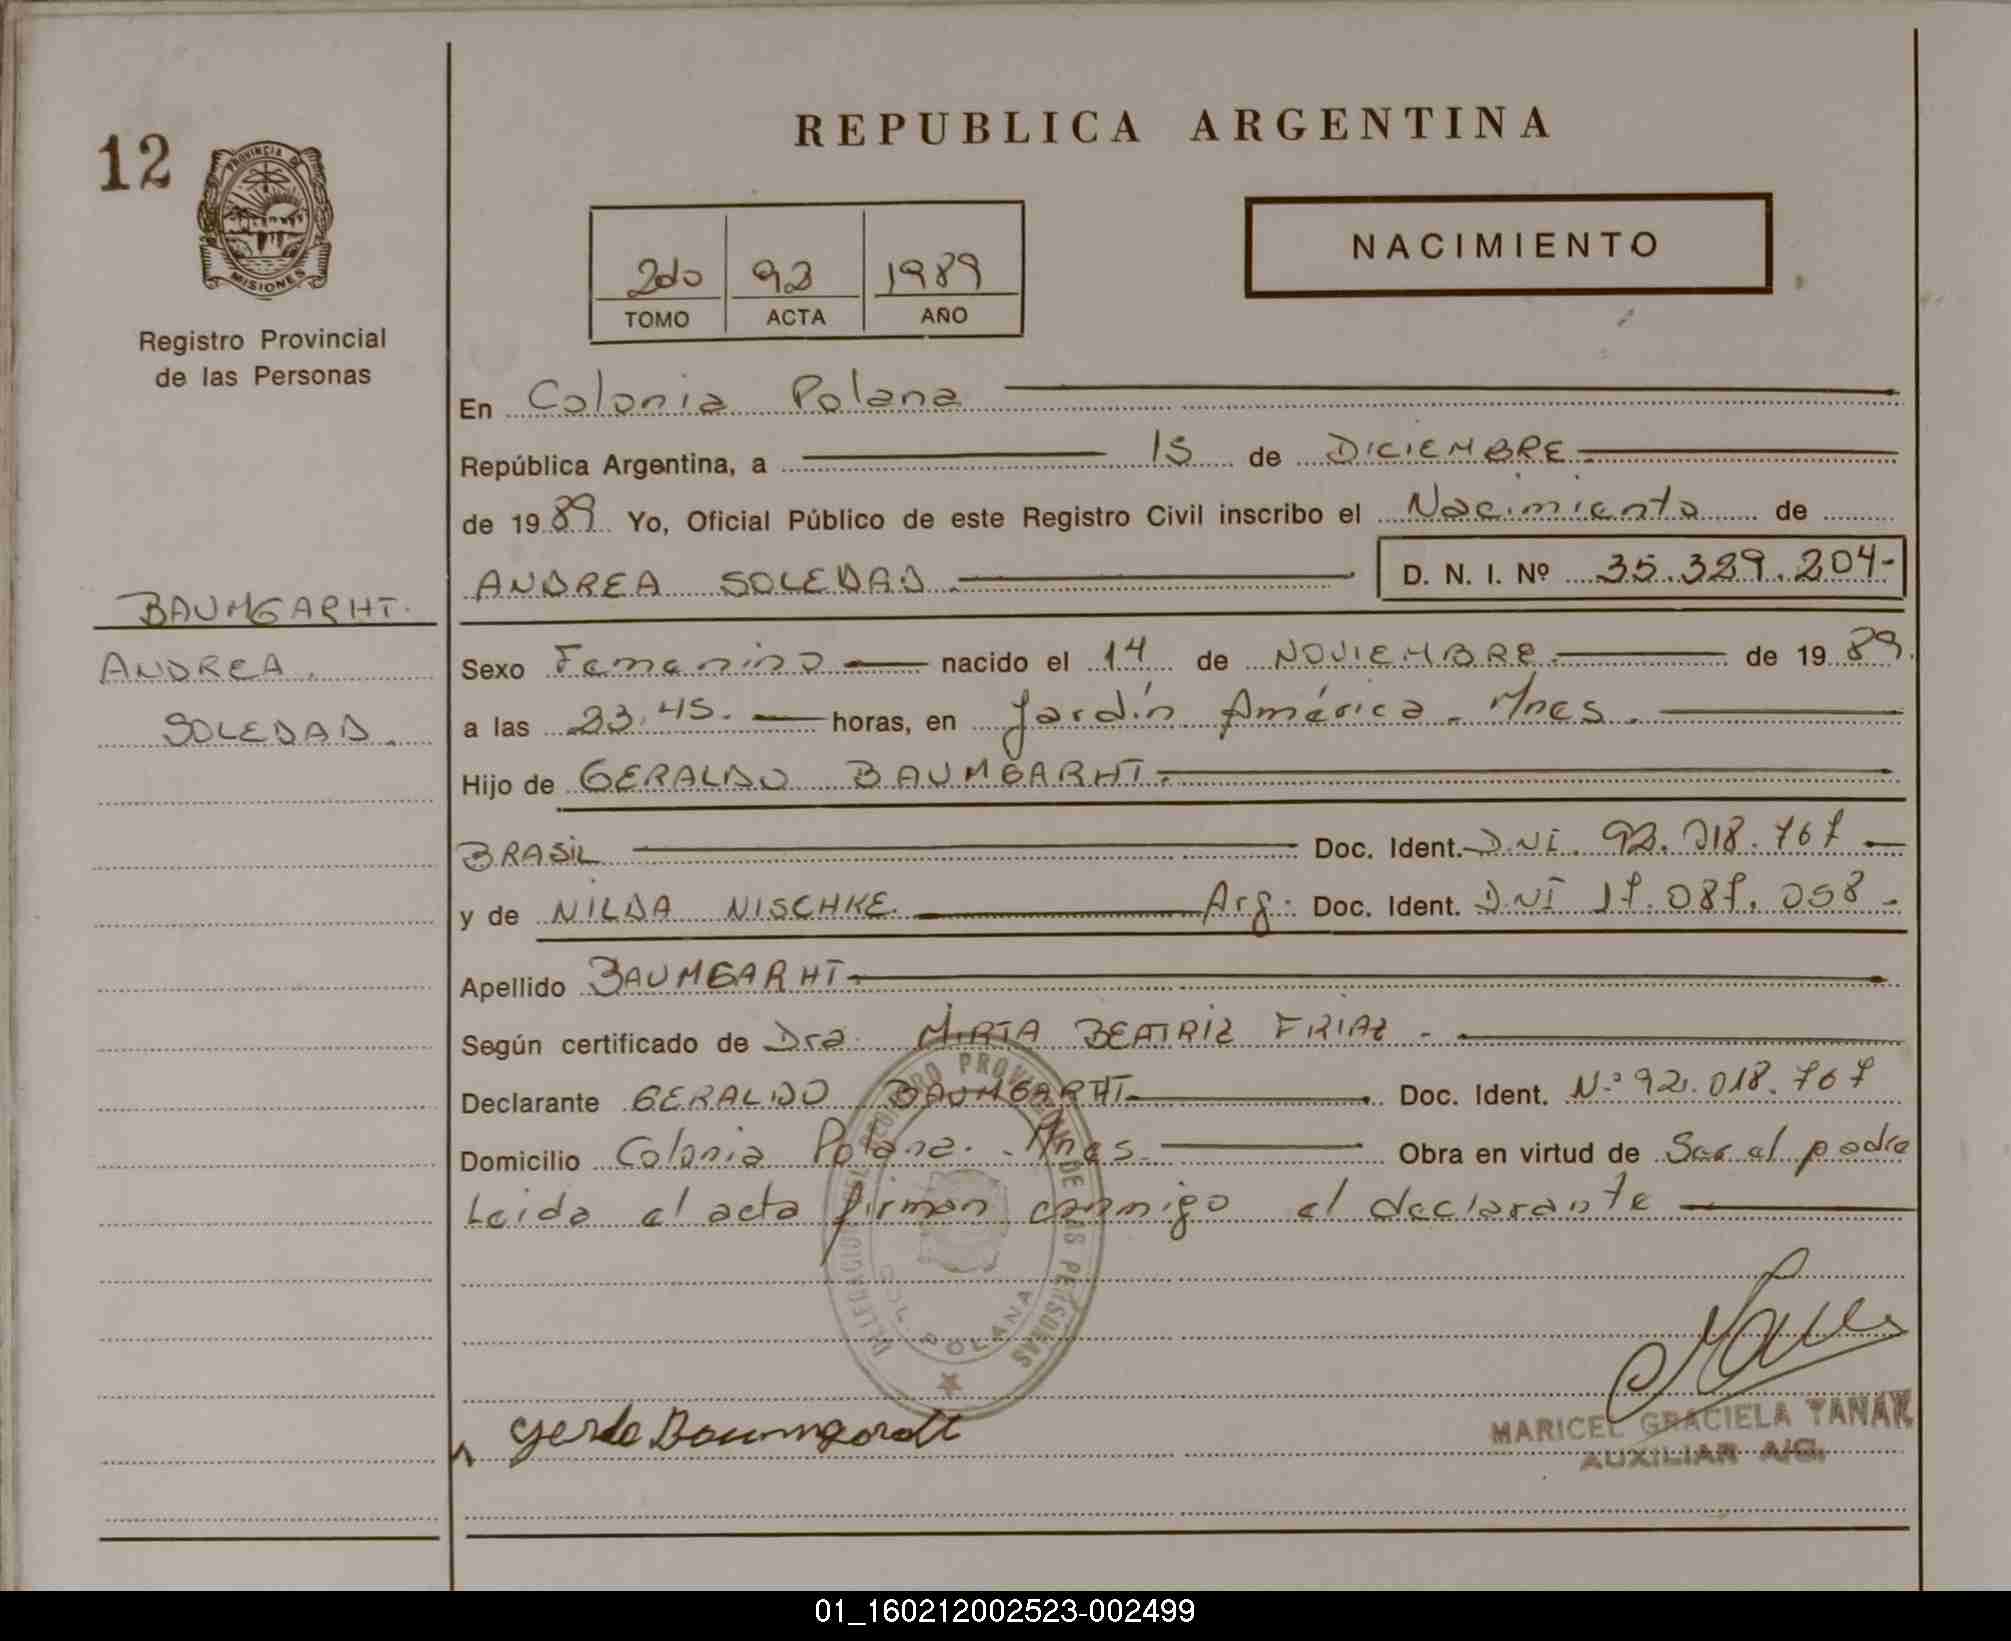 REPUBLICA ARGENTINA
12
PROVINCIA DE
MISIONES
Registro Provincial
de las Personas
NACIMIENTO
2do 92 1989
TOMO ACTA AÑO
En Colonia Polana
República Argentina, a 15 de DICIEMBRE
de 1989 Yo, Oficial Público de este Registro Civil inscribo el Nacimiento de
ANDREA SOLEDAD. D. N. I. Nº 35.329.204-
BAUMGARHT.
ANDREA.
SOLEDAD.
Sexo Femenino nacido el 14 de NOVIEMBRE de 1989.
a las 23.45. horas, en Jardín América. Mnes.
Hijo de GERALDO BAUMGARHT.
BRASIL Doc. Ident. DNI. 92.018.767
y de NILDA NISCHKE. Arg. Doc. Ident. DNI 17.087.058-
Apellido BAUMGARHT
Según certificado de Dra. MIRTA BEATRIZ FRIAZ.
Declarante GERALDO BAUMGARHT. Doc. Ident. Nº 92.018.767
Domicilio Colonia Polana. Mnes. Obra en virtud de Ser el padre
Leida el acta firman conmigo el declarante
REGISTRO PROVINCIAL DE LAS PERSONAS
COL. POLANA
MARICEL GRACIELA TANAK
AUXILIAR A/C.
01_160212002523-002499